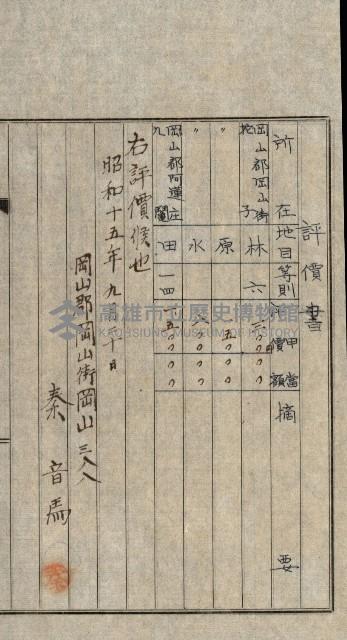 評價書
所在 地目 等則 甲當價額 摘要
岡山郡岡山街 子 林 六
〃 原 五〇〇〇
〃 水 八〇〇〇
岡山郡阿蓮庄九 田 一四 五〇〇〇
右評價候也
昭和十五年九月十日
岡山郡岡山街岡山三八八
秦音馬
高雄市立歷史博物館
KAOHSIUNG MUSEUM OF HISTORY